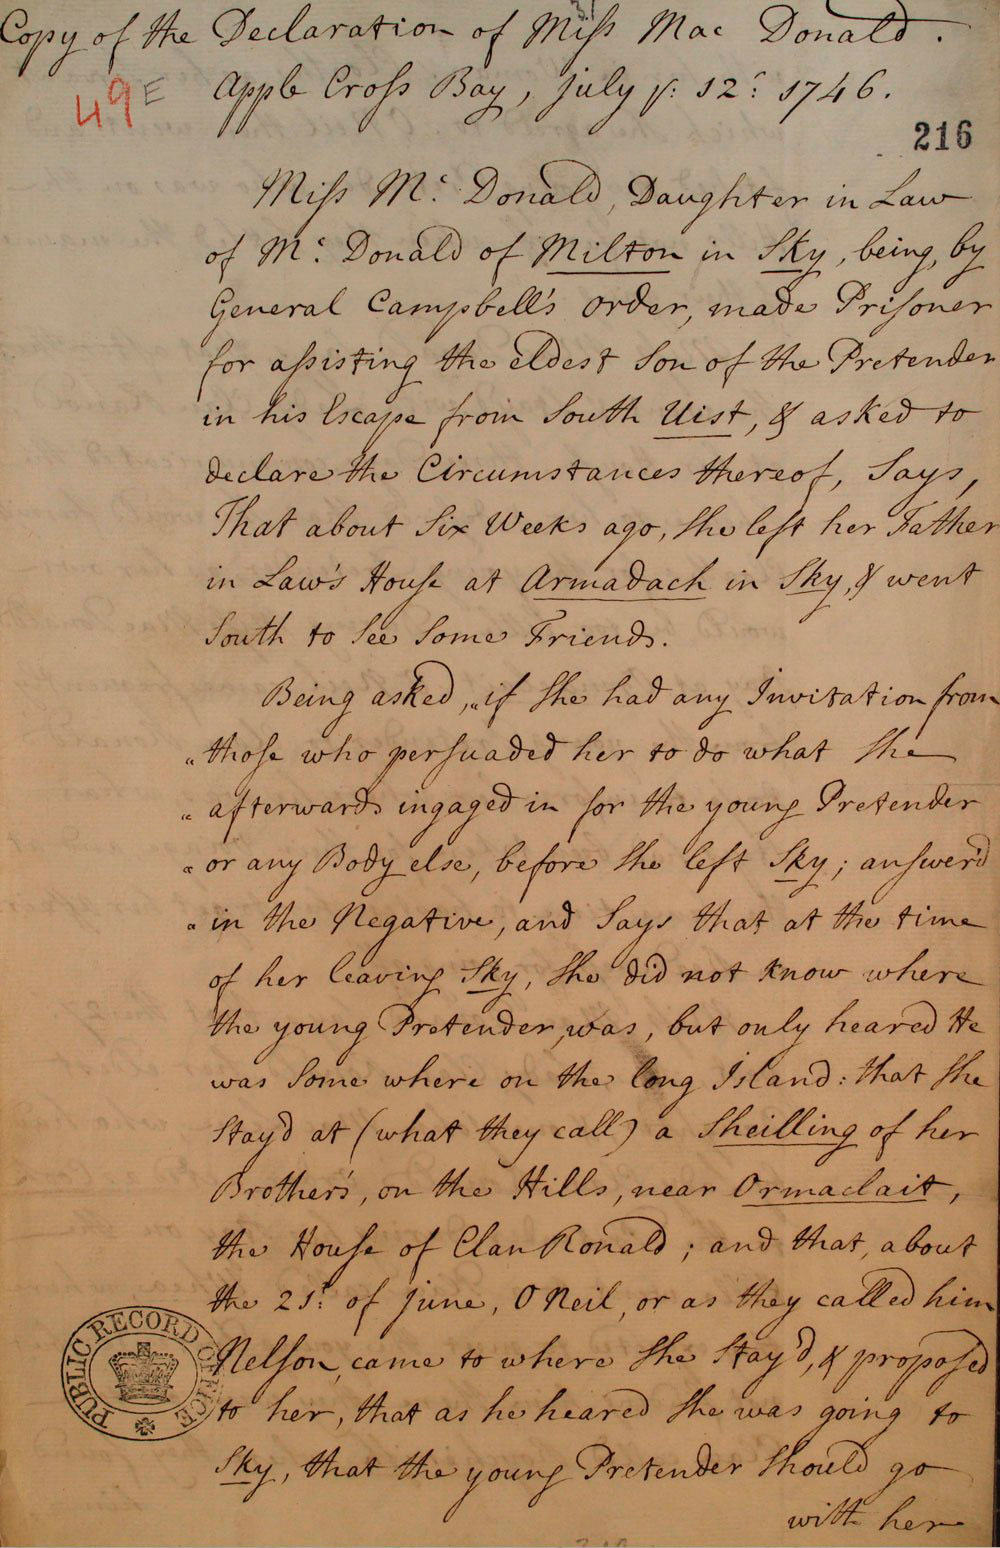 Copy of the Declaration of Miss Mac Donald.
49 E
Apple Cross Bay, July ye: 12t: 1746.
216
Miss Mc: Donald, Daughter in Law
of Mc: Donald of Milton in Sky, being, by
General Campbell's order, made Prisoner
for assisting the eldest Son of the Pretender
in his Escape from South Uist, & asked to
declare the Circumstances thereof, Says,
That about Six Weeks ago, She left her Father
in Law's House at Armadach in Sky, & went
South to See Some Friends.
Being asked, "if She had any Invitation from
"those who persuaded her to do what She
"afterwards ingaged in for the young Pretender
"or any Body else, before She left Sky; answer'd
"in the Negative, and Says that at the time
of her leaving Sky, She did not know where
the young Pretender was, but only heared He
was Some where on the long Island: that She
Stay'd at (what they call) a Sheilling of her
Brother's, on the Hills, near Ormaclait,
the House of Clan Ronald; and that, about
the 21t: of June, O Neil, or as they called him
Nelson, came to where She Stay'd, & proposed
to her, that as he heared She was going to
Sky, that the young Pretender Should go
with her
PUBLIC RECORD OFFICE